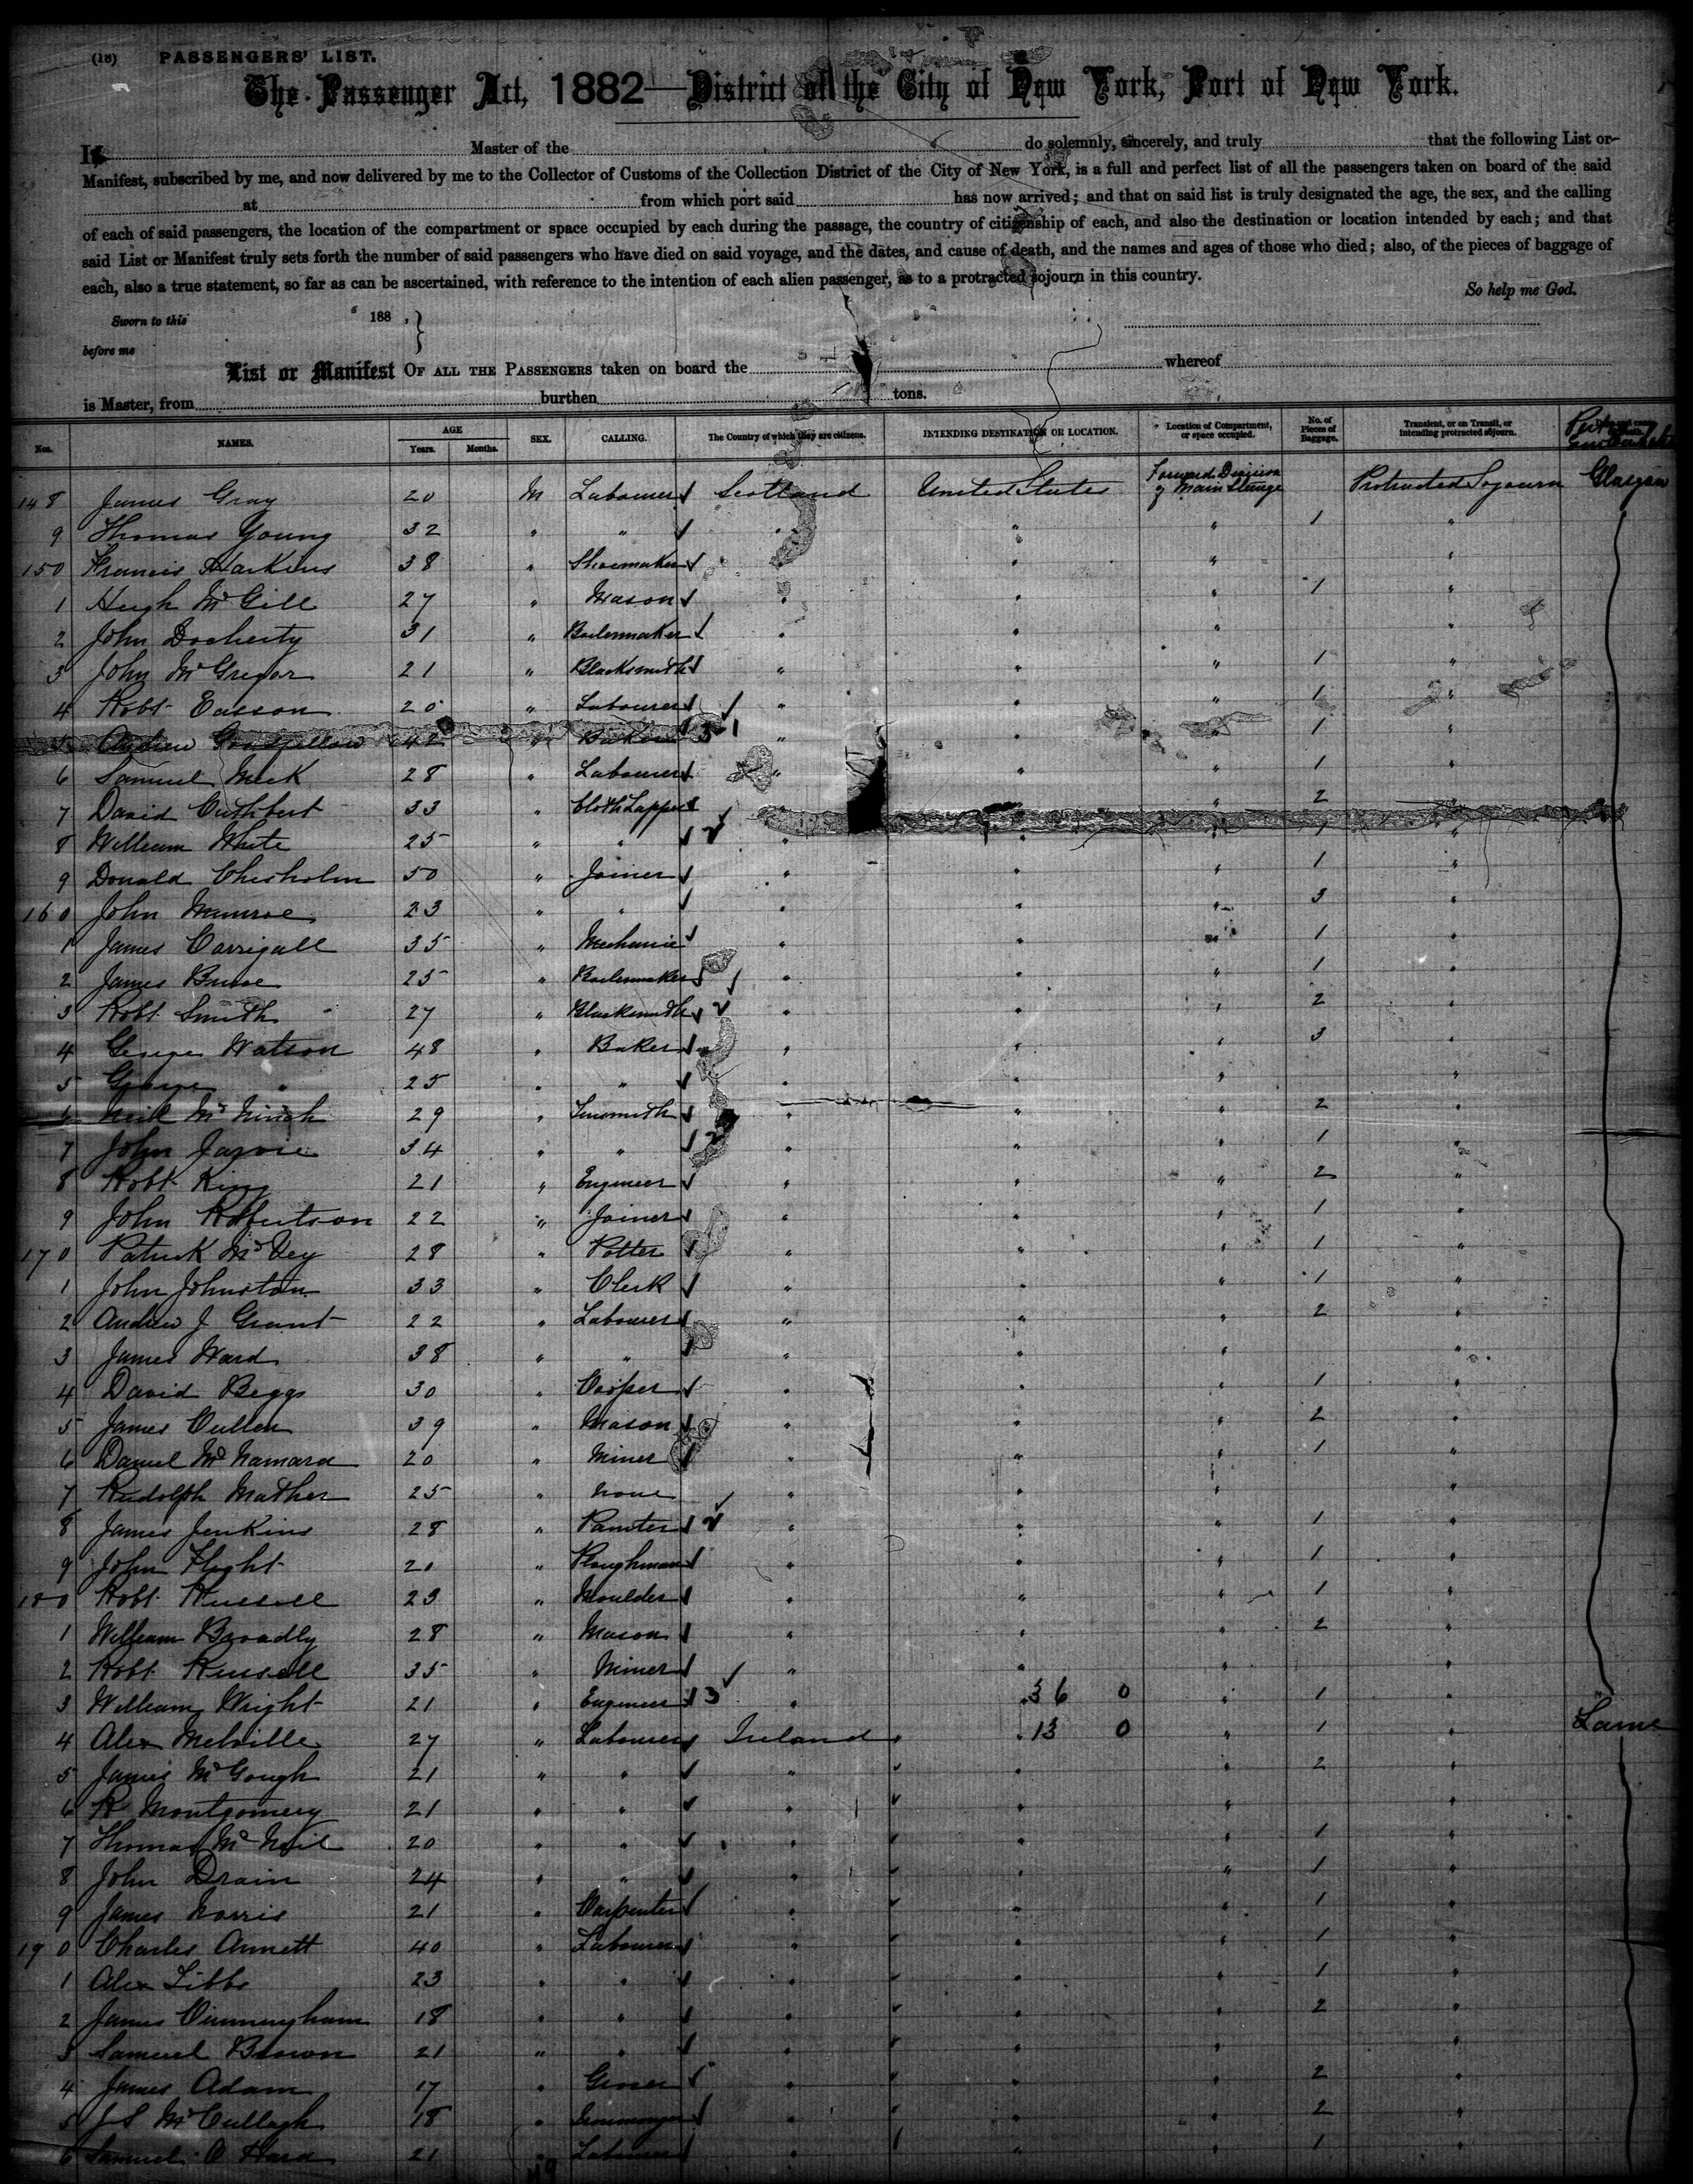 (18) PASSENGERS' LIST.
The Passenger Act, 1882—District of the City of New York, Port of New York.
I, Master of the do solemnly, sincerely, and truly that the following List or
Manifest, subscribed by me, and now delivered by me to the Collector of Customs of the Collection District of the City of New York, is a full and perfect list of all the passengers taken on board of the said
at from which port said has now arrived; and that on said list is truly designated the age, the sex, and the calling
of each of said passengers, the location of the compartment or space occupied by each during the passage, the country of citizenship of each, and also the destination or location intended by each; and that
said List or Manifest truly sets forth the number of said passengers who have died on said voyage, and the dates, and cause of death, and the names and ages of those who died; also, of the pieces of baggage of
each, also a true statement, so far as can be ascertained, with reference to the intention of each alien passenger, as to a protracted sojourn in this country.
So help me God.
Sworn to this 188 ,
before me
List or Manifest OF ALL THE PASSENGERS taken on board the whereof
is Master, from burthen tons.
Nos. NAMES. AGE Years. Months. SEX. CALLING. The Country of which they are citizens. INTENDING DESTINATION OR LOCATION. Location of Compartment, or space occupied. No. of Pieces of Baggage. Transient, or on Transit, or intending protracted sojourn.
148 James Gray 20 M Labourer Scotland United States Forward Division of Main Steerage Protracted Sojourn Glasgow
9 Thomas Young 32 " " " " " 1 "
150 Francis Harkins 38 " Shoemaker " " " "
1 Hugh McGill 27 " Mason " " " 1 "
2 John Docherty 31 " Boilermaker " " " "
3 John McGregor 21 " Blacksmith " " " 1 "
4 Robt Easson 20 " Labourer " " " 1 "
5 Andrew Goodfellow 42 " Baker 31 " " " 1 "
6 Samuel Meek 28 " Labourer " " " 1 "
7 David Cuthbert 33 " Cloth Lapper " 2 "
8 William White 25 " " 2 " " " 1 "
9 Donald Chisholm 50 " Joiner " " " 1 "
160 John Munroe 23 " " " " " 3 "
1 James Corrigall 35 " Mechanic " " " 1 "
2 James Bruce 25 " Boilermaker " " " 1 "
3 Robt Smith 27 " Blacksmith 2 " " " 2 "
4 George Watson 48 " Baker " " " 3 "
5 George " 25 " " " " " "
6 Neil McNinch 29 " Tinsmith " " " 2 "
7 John Jarvie 34 " " 2 " " " 1 "
8 Robt King 21 " Engineer " " " 2 "
9 John Robertson 22 " Joiner " " " 1 "
170 Patrick McVey 28 " Potter " " " 1 "
1 John Johnston 33 " Clerk " " " 1 "
2 Andrew J Grant 22 " Labourer " " " 2 "
3 James Ward 38 " " " " " "
4 David Beggs 30 " Cooper " " " 1 "
5 James Cullen 39 " Mason " " " 2 "
6 Daniel McNamara 20 " Miner " " " 1 "
7 Rudolph Mather 25 " None " " " "
8 James Jenkins 28 " Painter 2 " " " 1 "
9 John Flight 20 " Ploughman " " " 1 "
180 Robt Russell 23 " Moulder " " " 1 "
1 William Broadly 28 " Mason " " " 2 "
2 Robt Russell 35 " Miner " " " "
3 William Wright 21 " Engineer 3 " " 36 0 " 1 "
4 Alex Melville 27 " Labourer Ireland " 13 0 " 1 " Larne
5 James McGough 21 " " " " " 2 "
6 R Montgomery 21 " " " " " "
7 Thomas McNeil 20 " " " " " 1 "
8 John Drain 24 " " " " " 1 "
9 James Norris 21 " Carpenter " " " 1 "
190 Charles Annett 40 " Labourer " " " 1 "
1 Alex Tibbs 23 " " " " " 1 "
2 James Cunningham 18 " " " " " 2 "
3 Samuel Brown 21 " " " " " "
4 James Adam 17 " Grocer " " " 2 "
5 J S McCullagh 18 " Ironmonger " " " 2 "
6 Samuel O Hara 21 " Labourer " " " 1 "